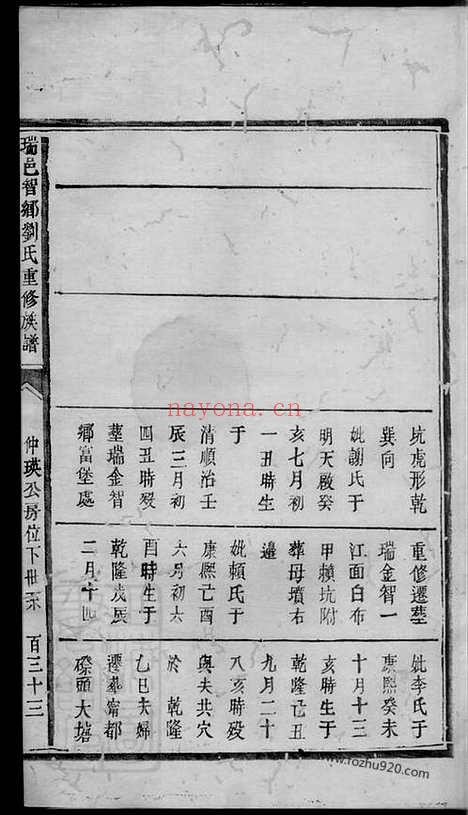 坑虎形乾
巽向
妣謝氏于
明天啟癸
亥七月初
一丑時生
于
清順治壬
辰三月初
四丑時歿
塟瑞金智
鄉富堡處
重修遷塟
瑞金智一
江面白布
甲賴坑附
葬母墳右
邉
妣賴氏于
康熙己酉
六月初六
酉時生于
乾隆戊辰
二月十四
妣李氏于
康熙癸未
十月十三
亥時生于
乾隆己丑
九月二十
八亥時歿
與夫共穴
於 乾隆
乙巳夫婦
遷塟甯都
磜頭大塘
瑞邑智鄉劉氏重修族譜
仲瑛公房位下世系
百三十三
nayona.cn
www.fozhu920.com